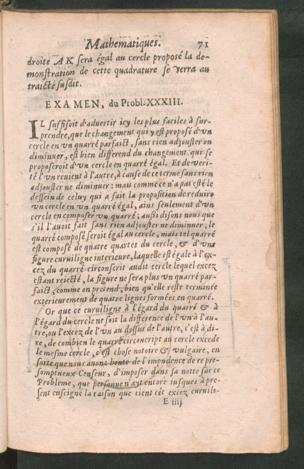 Mathematiques. 71
droite A K sera égal au cercle proposé la de-
monstration de cette quadrature se verra au
traicté susdit.
EXAMEN, du Probl. XXXIII.
IL suffisoit d'advertir icy les plus faciles à sur-
prendre, que le changement qui y est proposé d'vn
cercle en un quarré parfaict, sans rien adjouster ou
diminuer, est bien differend du changement qui se
proposeroit d'vn cercle en quarré égal. Et de veri-
té l'vn revient à l'autre, à cause de ce terme sans rien
adjouster ne diminuer: mais comme ce n'a pas esté le
dessein de celuy qui a fait la proposition de reduire
vn cercle en vn quarré égal, ains seulement d'vn
cercle en composer vn quarré; aussi disons nous que
s'il l'avoit fait sans rien adjouster ne diminuer, le
quarré composé seroit égal au cercle, mais tel quarré
est composé de quatre quartes du cercle, & d'vne
figure curuiligne interieure, laquelle est égale à l'ex-
cez du quarré circonscrit audit cercle lequel excez
estant rejecté, la figure ne sera plus vn quarré par-
faict, comme on pretend, bien qu'elle reste terminée
exterieurement de quatre lignes formées en quarré.
Or que ce curuiligne à l'égard du quarré &
à l'égard du cercle ne soit la difference de l'vn à l'au-
tre, ou l'excez de l'vn au dessus de l'autre, c'est à di-
re, de combien le quarré circonscript au cercle excede
le mesme cercle, c'est chose notoire & vulgaire, en
suite que nous avons honte de l'impudence de ce pre-
somptueux Censeur, d'imposer dans sa notte sur ce
Probleme, que personne n'ayt encore iusques à pre-
sent enseigné la raison que tient cét excez curuili-
E iiij